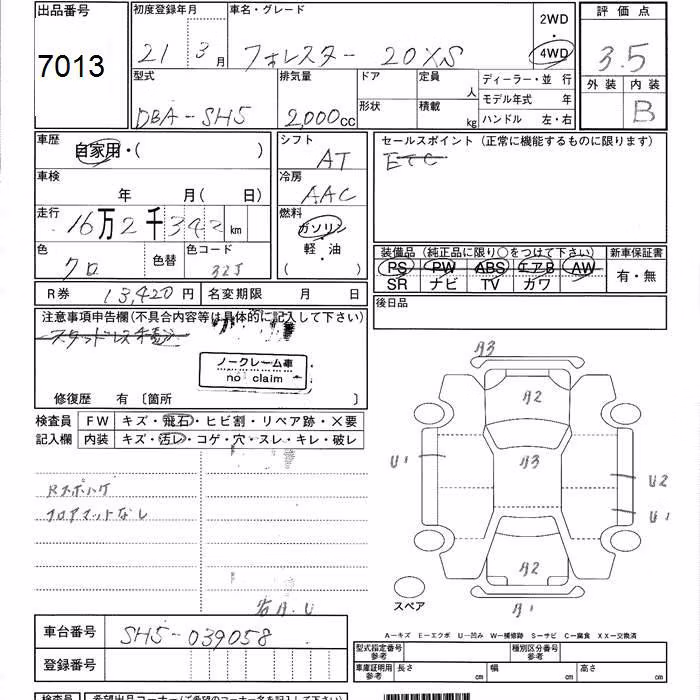 出品番号
7013
初度登録年月
21 3月
車名・グレード
フォレスター 20XS
2WD
・
4WD
評価点
3.5
外装 内装
B
型式
DBA-SH5
排気量
2,000cc
ドア
形状
定員
人
積載
kg
ディーラー・並 行
モデル年式 年
ハンドル 左・右
車歴
自家用・( )
車検
年 月( 日)
走行
16万2千342km
色
クロ
色替
色コード
32J
シフト
AT
冷房
AAC
燃料
ガソリン
・
軽・油
( )
セールスポイント (正常に機能するものに限ります)
ETC
装備品 (純正品に限り○をつけて下さい)
PS PW ABS エアB AW
SR ナビ TV カワ
新車保証書
有・無
R券 13,420円
名変期限 月 日
後日品
注意事項申告欄(不具合内容等は具体的に記入して下さい)
ノークレーム車
no claim
修復歴 有 〔箇所 〕
検査員
記入欄
FW キズ・飛石・ヒビ割・リペア跡・×要
内装 キズ・汚レ・コゲ・穴・スレ・キレ・破レ
Rスポハゲ
フロアマットなし
A3
A2
A3
U1
U2
U1
A2
A1
スペア
A-キズ E-エクボ U-凹み W-補修跡 S-サビ C-腐食 XX-交換済
車台番号
SH5-039058
登録番号
型式指定番号
参考
種別区分番号
参考
車庫証明用
参考
長さ cm 幅 cm 高さ cm
検査員
希望出品コーナー(ご希望のコーナー名を記入して下さい)